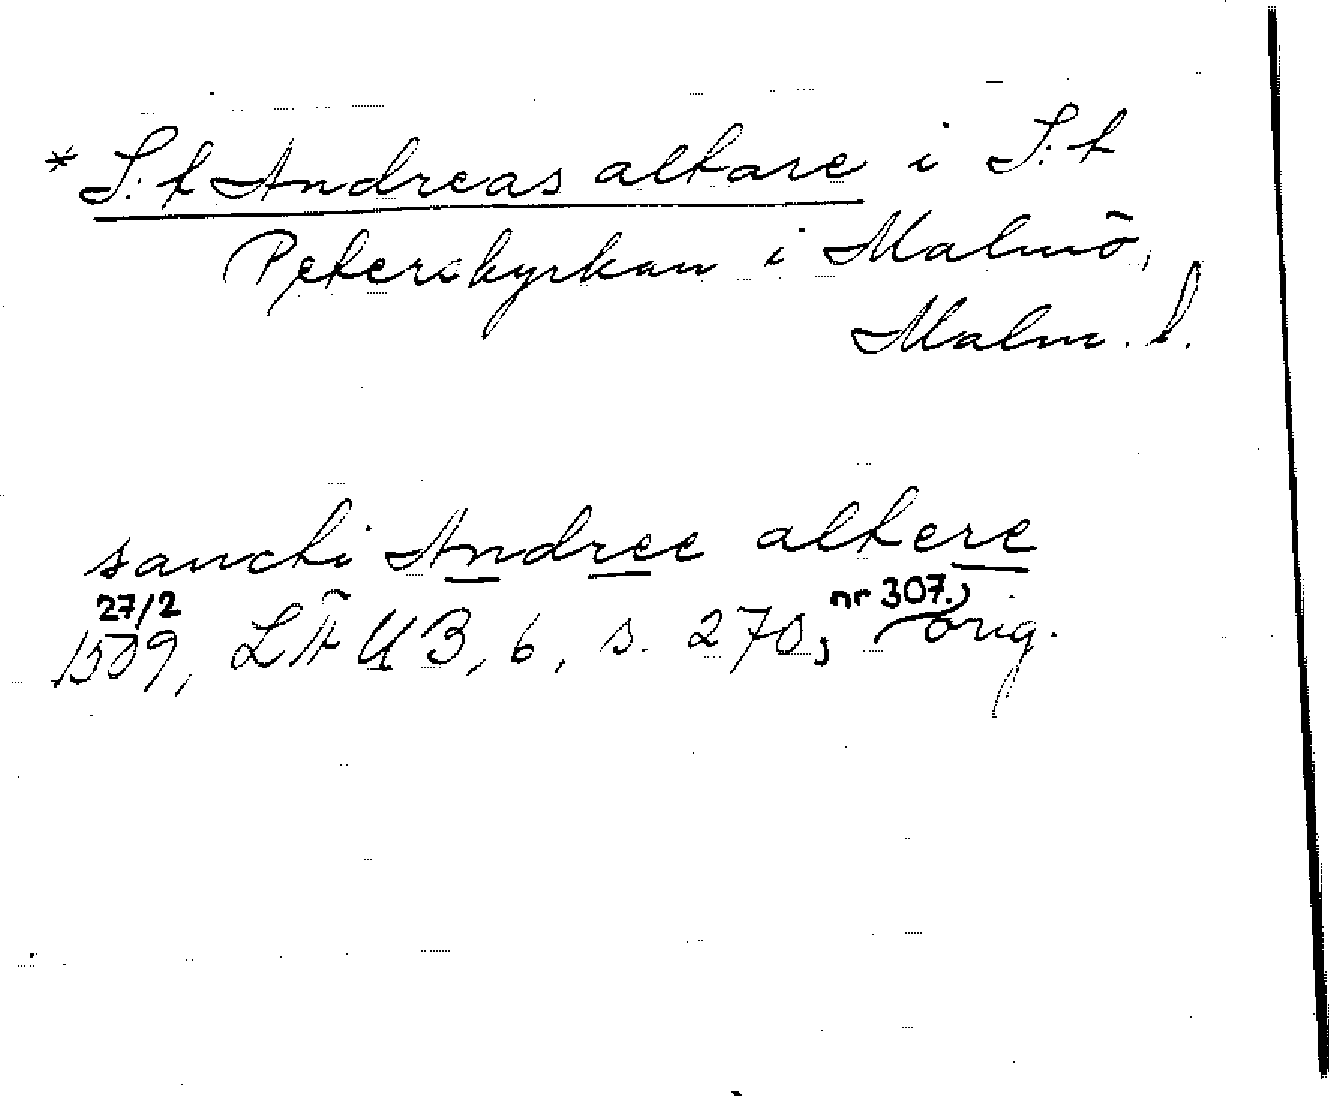 * S:t Andreas altare i S:t
Peterskyrkan i Malmö,
Malm. l.
sancti Andree altere
27/2 nr 307.,
1509, LÄUB, 6, s. 270, orig.